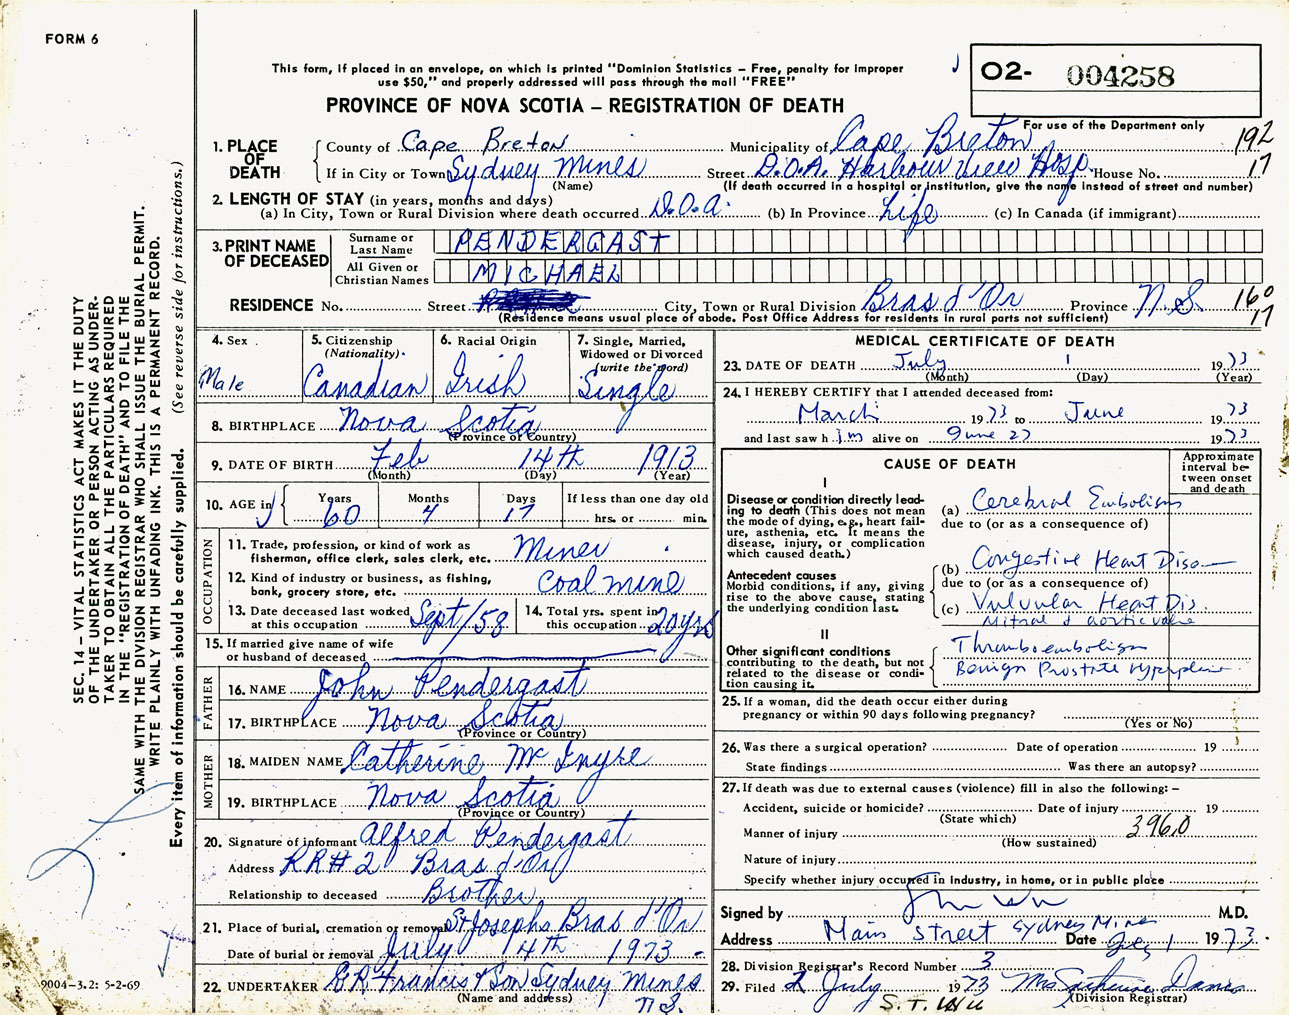 FORM 6
This form, if placed in an envelope, on which is printed "Dominion Statistics – Free, penalty for improper
use $50," and properly addressed will pass through the mail "FREE"
O2- 004258
PROVINCE OF NOVA SCOTIA – REGISTRATION OF DEATH
For use of the Department only
192
17
1. PLACE OF DEATH
County of Cape Breton Municipality of Cape Breton
If in City or Town Sydney Mines Street D.O.A. Harbour View Hosp. House No.
(Name) (If death occurred in a hospital or institution, give the name instead of street and number)
2. LENGTH OF STAY (in years, months and days)
(a) In City, Town or Rural Division where death occurred D.O.A. (b) In Province Life (c) In Canada (if immigrant)
3. PRINT NAME OF DECEASED
Surname or Last Name PENDERGAST
All Given or Christian Names MICHAEL
RESIDENCE No. Street City, Town or Rural Division Bras d'Or Province N.S. 160
17
(Residence means usual place of abode. Post Office Address for residents in rural parts not sufficient)
4. Sex
Male
5. Citizenship
(Nationality)
Canadian
6. Racial Origin
Irish
7. Single, Married,
Widowed or Divorced
(write the word)
Single
8. BIRTHPLACE Nova Scotia
(Province or Country)
9. DATE OF BIRTH Feb 14th 1913
(Month) (Day) (Year)
10. AGE in
Years Months Days If less than one day old
60 4 17 hrs. or min.
OCCUPATION
11. Trade, profession, or kind of work as
fisherman, office clerk, sales clerk, etc. Miner
12. Kind of industry or business, as fishing,
bank, grocery store, etc. Coal mine
13. Date deceased last worked
at this occupation Sept/58
14. Total yrs. spent in
this occupation 20 yrs
15. If married give name of wife
or husband of deceased
FATHER
16. NAME John Pendergast
17. BIRTHPLACE Nova Scotia
(Province or Country)
MOTHER
18. MAIDEN NAME Catherine Mc Inyre
19. BIRTHPLACE Nova Scotia
(Province or Country)
20. Signature of informant Alfred Pendergast
Address RR#2 Bras d'Or
Relationship to deceased Brother
21. Place of burial, cremation or removal St Josephs Bras d'Or
Date of burial or removal July 4th 1973
22. UNDERTAKER Francis & Son Sydney Mines
(Name and address) N.S.
MEDICAL CERTIFICATE OF DEATH
23. DATE OF DEATH July 1 1973
(Month) (Day) (Year)
24. I HEREBY CERTIFY that I attended deceased from:
March 1973 to June 1973
and last saw h im alive on June 27 1973
CAUSE OF DEATH
Approximate
interval be-
tween onset
and death
I
Disease or condition directly lead-
ing to death (This does not mean
the mode of dying, e.g., heart fail-
ure, asthenia, etc. It means the
disease, injury, or complication
which caused death.)
(a) Cerebral Embolism
due to (or as a consequence of)
Antecedent causes
Morbid conditions, if any, giving
rise to the above cause, stating
the underlying condition last.
(b) Congestive Heart Dise
due to (or as a consequence of)
(c) Vulvular Heart Dis.
Mitral & aortic valve
II
Other significant conditions
contributing to the death, but not
related to the disease or condi-
tion causing it.
Thromboembolism
Benign Prostate
25. If a woman, did the death occur either during
pregnancy or within 90 days following pregnancy?
(Yes or No)
26. Was there a surgical operation? Date of operation 19
State findings Was there an autopsy?
27. If death was due to external causes (violence) fill in also the following: –
Accident, suicide or homicide? Date of injury 19
(State which)
3960
Manner of injury
(How sustained)
Nature of injury
Specify whether injury occurred in industry, in home, or in public place
Signed by M.D.
Address Main Street Sydney Mines Date 1 1973
28. Division Registrar's Record Number 3
29. Filed 2 July 1973 Mrs
(Division Registrar)
SEC. 14 – VITAL STATISTICS ACT MAKES IT THE DUTY
OF THE UNDERTAKER OR PERSON ACTING AS UNDER-
TAKER TO OBTAIN ALL THE PARTICULARS REQUIRED
IN THE "REGISTRATION OF DEATH" AND TO FILE THE
SAME WITH THE DIVISION REGISTRAR WHO SHALL ISSUE THE BURIAL PERMIT.
WRITE PLAINLY WITH UNFADING INK. THIS IS A PERMANENT RECORD.
Every item of information should be carefully supplied. (See reverse side for instructions.)
9004-3.2: 5-2-69